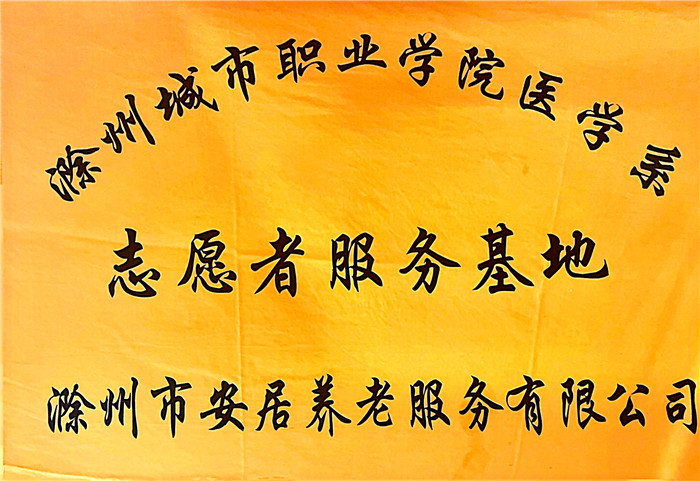 滁州城市职业学院医学系
志愿者服务基地
滁州市安居养老服务有限公司